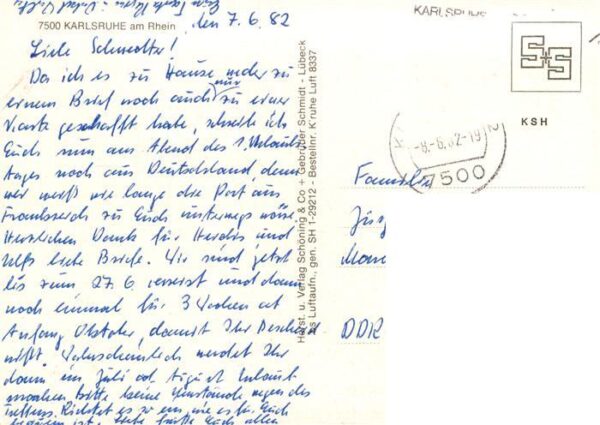 7500 KARLSRUHE am Rhein
den 7.6.82
Liebe Schmedter!
Da ich es zu Hause weder zu
einem Brief noch auch nur zu einer
Karte geschafft habe, schreibe ich
Euch nun am Abend des 1. Urlaubs
tages noch aus Deutschland, denn
wer weiß wie lange die Post aus
Frankreich zu Euch unterwegs wäre.
Herzlichen Dank für Herdis und
Ulfs liebe Briefe. Wir sind jetzt
bis zum 27.6. verreist und dann
noch einmal für 3 Wochen ab
Anfang Oktober, damit Ihr Bescheid
wißt. Wahrscheinlich werdet Ihr
dann im Juli od. August Urlaub
machen, bitte keine Umstände wegen des
Treffens. Richtet es so ein, wie es für Euch
Herst. u. Verlag Schöning & Co + Gebrüder Schmidt - Lübeck
Luftaufn., gen. SH 1-29212 - Bestellnr. K'ruhe Luft 8337
KARLSRUHE
S+S
KSH
-8.-6.82-19
7500
Familie
DDR